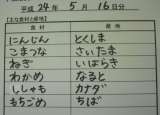 平成 24年 5月 16日分
【主な食材と産地】
食材 産地
にんじん とくしま
こまつな さいたま
ねぎ いばらき
わかめ なると
ししゃも カナダ
もちごめ ちば